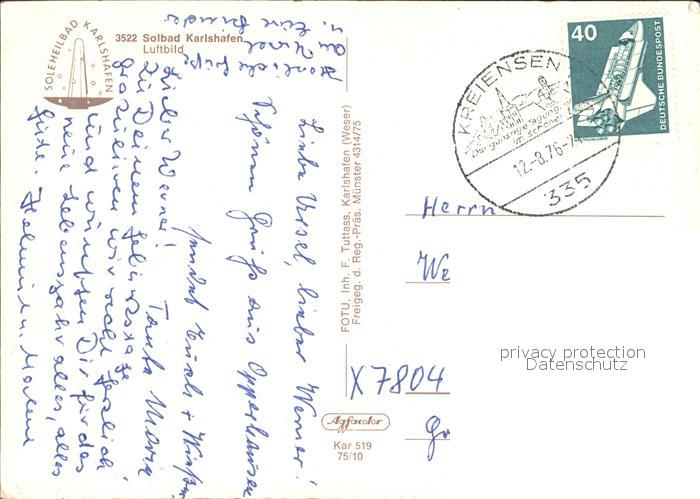 SOLEHEILBAD KARLSHAFEN
3522 Solbad Karlshafen
Luftbild
40
DEUTSCHE BUNDESPOST
KREIENSEN
12.-8.76-
335
Liebe Ursel, lieber Werner!
Schönen Gruß aus Opperhausen
sendet Euch
Tante Maria
Lieber Werner!
Zu Deinem Geburtstage
gratulieren wir recht herzlich
und wünschen Dir für das
neue Lebensjahr alles, alles
Gute.
Herzliche Grüße
an Ursel
u. Eure Kinder
FOTU, Inh. F. Tuttass, Karlshafen (Weser)
Freigeg. d. Reg.-Präs. Münster 4314/75
Herrn
We
X7804
Agfacolor
Kar 519
75/10
privacy protection
Datenschutz